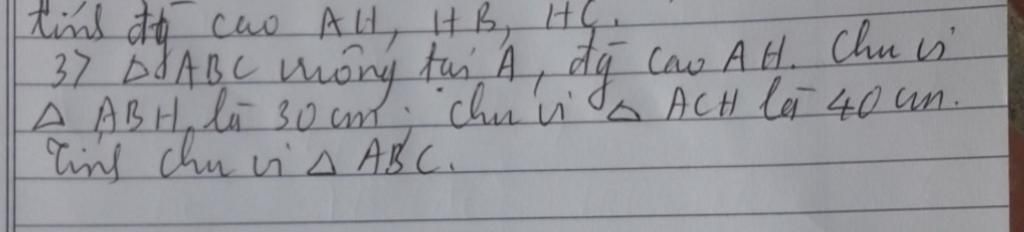 tính đg cao AH, HB, HC.
3) Δ ABC vuông tại A, đg cao AH. Chu vi
Δ ABH là 30 cm; chu vi Δ ACH là 40 cm.
Tính chu vi Δ ABC.